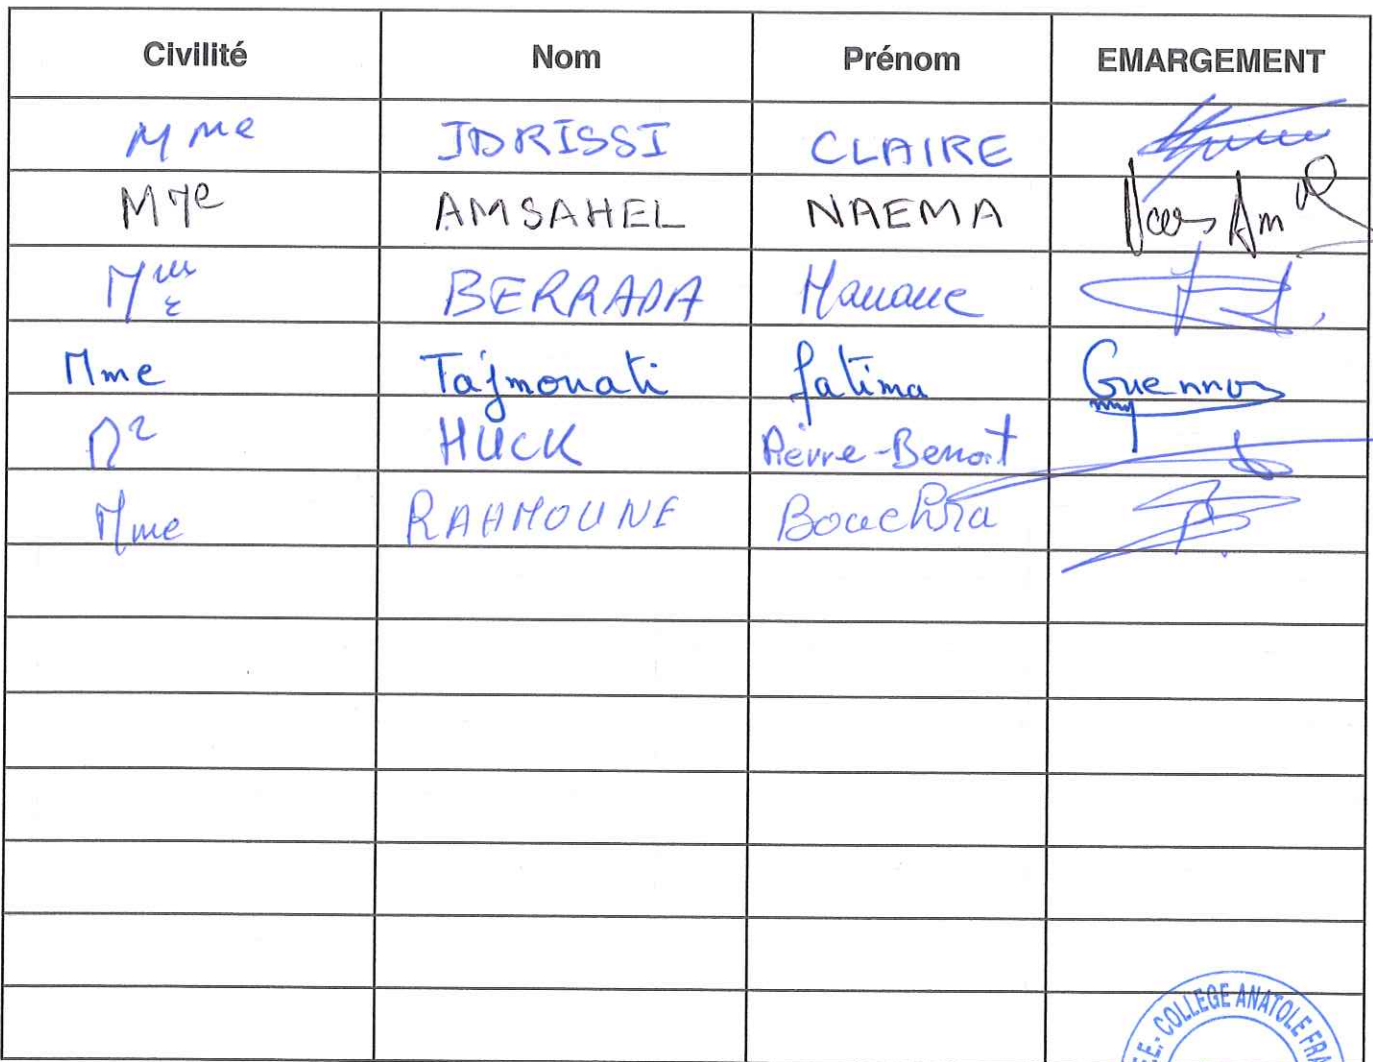 Civilité Nom Prénom EMARGEMENT
Mme IDRISSI CLAIRE
Mme AMSAHEL NAEMA
Mme BERRADA Hanane
Mme Tajmouati fatima Guennou
Mr HUCK Pierre-Benoit
Mme RAHMOUNE Bouchra
E.E.- COLLEGE ANATOLE FRA